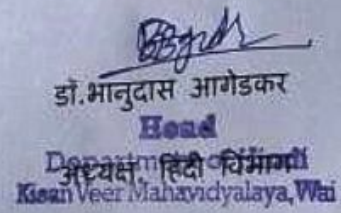 डॉ.भानुदास आगेडकर
Head
Department of Hindi
अध्यक्ष, हिंदी विभाग
Kisan Veer Mahavidyalaya, Wai